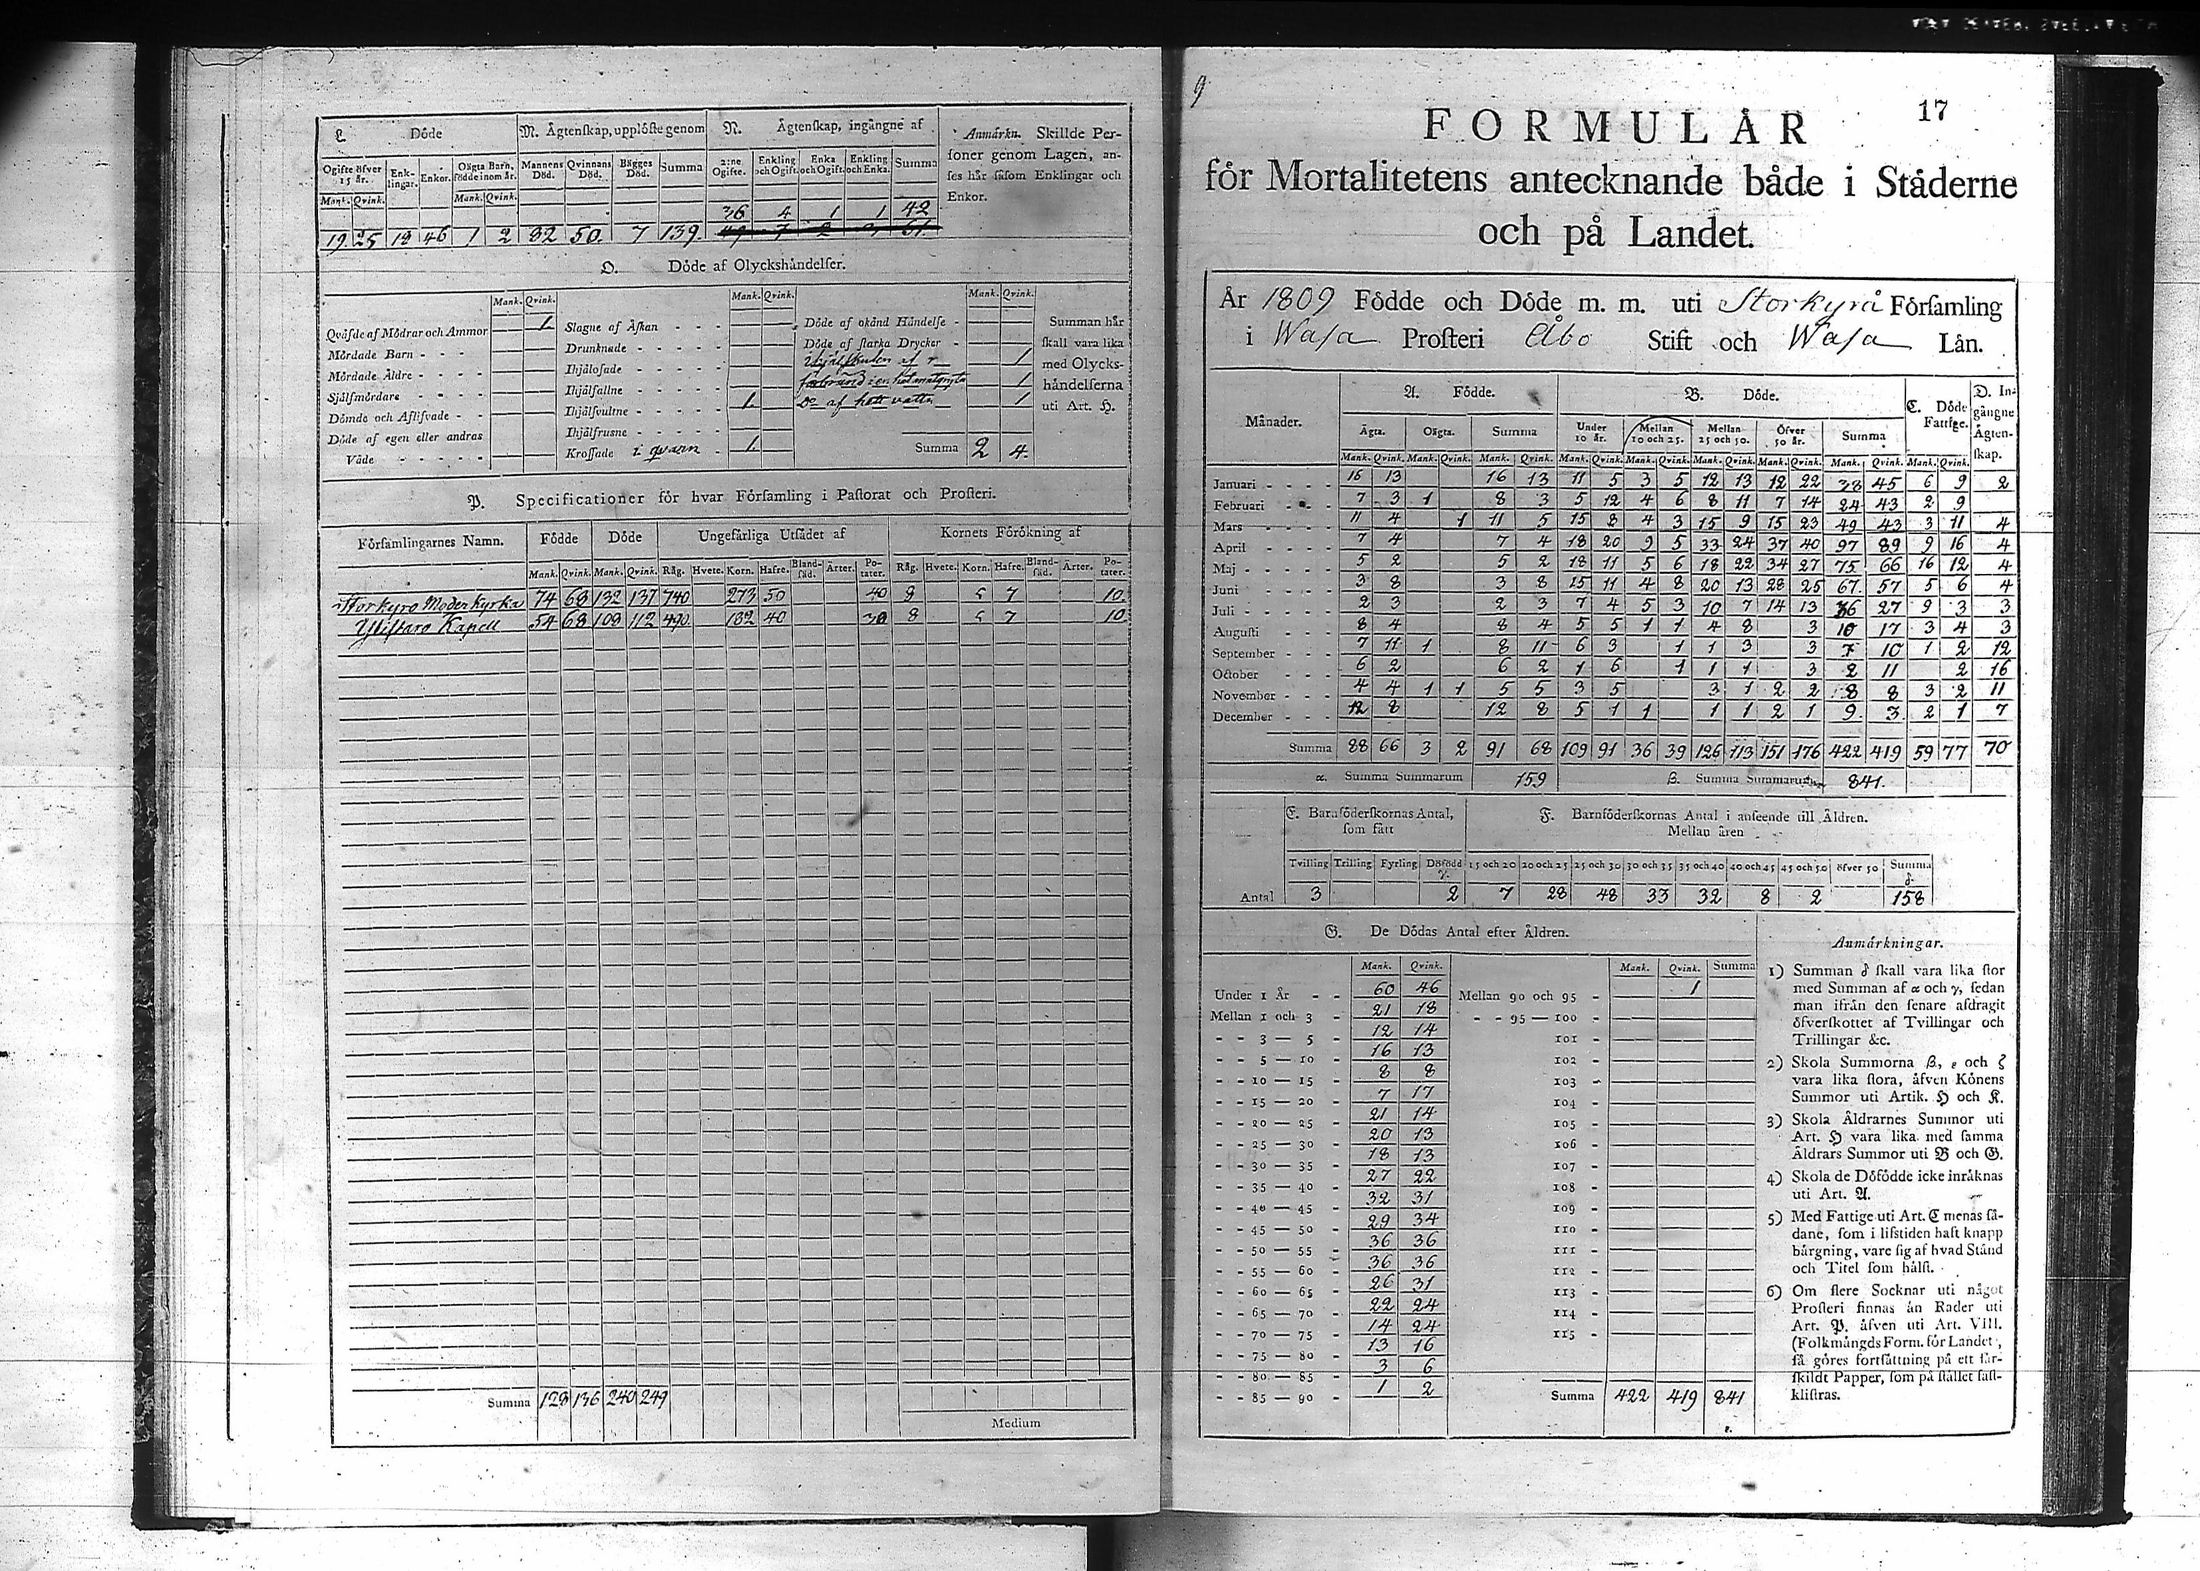 L. Döde
M. Ägtenskap, upplöste genom
N. Ägtenskap, ingångne af
Anmärkn. Skillde Per-
soner genom Lagen, an-
ses här såsom Enklingar och
Enkor.
Ogifte öfver 15 år. Enk-lingar. Enkor. Oägta Barn, födde inom år. Mannens Död. Qvinnans Död. Bägges Död. Summa 2:ne Ogifte. Enkling och Ogift. Enka och Ogift. Enkling och Enka. Summa
Mank. Qvink. Mank. Qvink.
36 4 1 1 42
19 25 19 46 1 2 82 50. 7 139. 49 7 2 3 61.
O. Döde af Olyckshändelser.
Mank. Qvink. Mank. Qvink. Mank. Qvink.
Qväfde af Mödrar och Ammor 1
Mördade Barn
Mördade Äldre
Självmördare
Dömde och Aflifvade
Döde af egen eller andras
Våde
Slagne af Åskan
Drunknade
Ihjälosade
Ihjälfallne 1.
Ihjälsvultne
Ihjälfrusne
Krossade i qvarn 1.
Döde af okänd Händelse
Döde af starka Drycker
1
1
Do af hett vatten 1
Summa 2 4.
Summan här
skall vara lika
med Olycks-
händelserna
uti Art. H.
P. Specificationer för hvar Församling i Pastorat och Prosteri.
Församlingarnes Namn. Födde Döde Ungefärliga Utsädet af Kornets Förökning af
Mank. Qvink. Mank. Qvink. Råg. Hvete. Korn. Hafre. Bland-säd. Ärter. Po-tater. Råg. Hvete. Korn. Hafre. Bland-säd. Ärter. Po-tater.
Storkyro Moderkyrka 74 68 132 137 740 273 50 40 9 5 7 10.
Ylistaro Kapell 54 68 109 112 490. 182 40 30 8 5 7 10.
Summa 128 136 240 249
Medium
9
17
FORMULÄR
för Mortalitetens antecknande både i Städerne
och på Landet.
År 1809 Födde och Döde m. m. uti Storkyrå Församling
i Wasa Prosteri Åbo Stift och Wasa Län.
Månader. A. Födde. B. Döde. C. Döde Fattige. D. In-gångne Ägten-skap.
Ägta. Oägta. Summa Under 10 år. Mellan 10 och 25. Mellan 25 och 50. Öfver 50 år. Summa
Mank. Qvink. Mank. Qvink. Mank. Qvink. Mank. Qvink. Mank. Qvink. Mank. Qvink. Mank. Qvink. Mank. Qvink. Mank. Qvink.
Januari 16 13 16 13 11 5 3 5 12 13 12 22 38 45 6 9 2
Februari 7 3 1 8 3 5 12 4 6 8 11 7 14 24 43 2 9
Mars 11 4 1 11 5 15 8 4 3 15 9 15 23 49 43 3 11 4
April 7 4 7 4 18 20 9 5 33 24 37 40 97 89 9 16 4
Maj 5 2 5 2 18 11 5 6 18 22 34 27 75 66 16 12 4
Juni 3 8 3 8 15 11 4 8 20 13 28 25 67. 57 5 6 4
Juli 2 3 2 3 7 4 5 3 10 7 14 13 36 27 9 3 3
Augusti 8 4 8 4 5 5 1 1 4 8 3 10 17 3 4 3
September 7 11 1 8 11 6 3 1 1 3 3 7 10 1 2 12
October 6 2 6 2 1 6 1 1 1 3 2 11 2 16
November 4 4 1 1 5 5 3 5 3 1 2 2 8 8 3 2 11
December 12 8 12 8 5 1 1 1 1 2 1 9. 3 2 1 7
Summa 88 66 3 2 91 68 109 91 36 39 126 113 151 176 422 419 59 77 70
α. Summa Summarum 159 β. Summa Summarum 841.
E. Barnföderskornas Antal, som fått
F. Barnföderskornas Antal i anseende till Åldren.
Mellan åren
Tvilling Trilling Fyrling Döfödd γ. 15 och 20 20 och 25 25 och 30 30 och 35 35 och 40 40 och 45 45 och 50 öfver 50 Summa δ.
Antal 3 2 7 28 48 33 32 8 2 158
G. De Dödas Antal efter Åldren.
Mank. Qvink. Mank. Qvink. Summa
Under 1 År 60 46 Mellan 90 och 95 1
Mellan 1 och 3 21 18 95 — 100
3 — 5 12 14 101
5 — 10 16 13 102
10 — 15 8 8 103
15 — 20 7 17 104
20 — 25 21 14 105
25 — 30 20 13 106
30 — 35 18 13 107
35 — 40 27 22 108
40 — 45 32 31 109
45 — 50 29 34 110
50 — 55 36 36 111
55 — 60 36 36 112
60 — 65 26 31 113
65 — 70 22 24 114
70 — 75 14 24 115
75 — 80 13 16
80 — 85 3 6
85 — 90 1 2 Summa 422 419 841
Anmärkningar.
1) Summan δ skall vara lika stor
med Summan af α och γ, sedan
man ifrån den senare afdragit
öfverskottet af Tvillingar och
Trillingar &c.
2) Skola Summorna β, ε och ζ
vara lika stora, äfven Könens
Summor uti Artik. H och K.
3) Skola Åldrarnes Summor uti
Art. H vara lika med samma
Åldrars Summor uti B och G.
4) Skola de Döfödde icke inräknas
uti Art. A.
5) Med Fattige uti Art. C menas så-
dane, som i lifstiden haft knapp
bärgning, vare sig af hvad Stånd
och Titel som hälst.
6) Om flere Socknar uti något
Prosteri finnas än Rader uti
Art. P. äfven uti Art. VIII.
(Folkmängds Form. för Landet,
så göres fortsättning på ett sär-
skildt Papper, som på stället fast-
klistras.